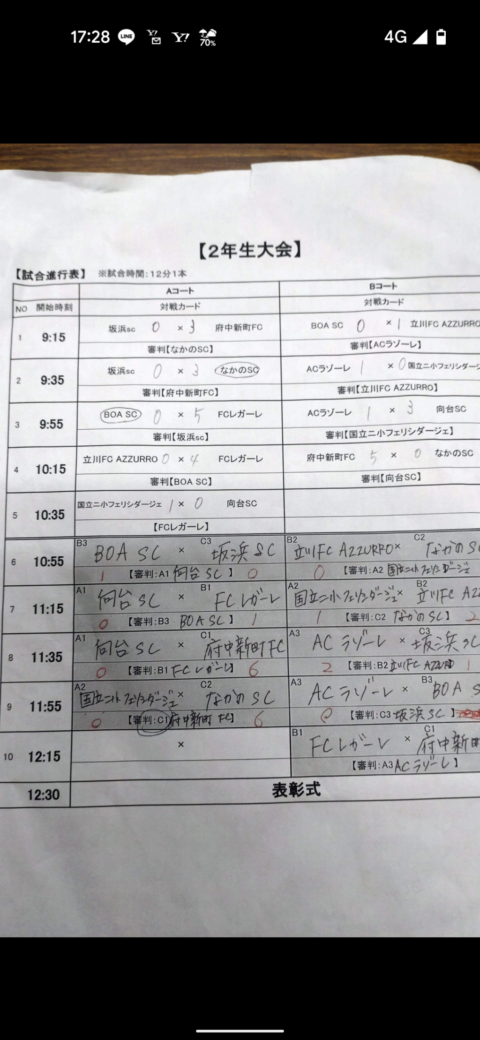 17:28 LINE Y! Y! 70% 4G
【2年生大会】
【試合進行表】 ※試合時間:12分1本
Aコート Bコート
NO 開始時刻 対戦カード 対戦カード
1 9:15 坂浜sc 0 × 3 府中新町FC BOA SC 0 ×1 立川FC AZZURRO
審判【なかのSC】 審判【ACラゾーレ】
2 9:35 坂浜sc 0 × 3 なかのSC ACラゾーレ 1 ×0 国立二小フェリシダージェ
審判【府中新町FC】 審判【立川FC AZZURRO】
3 9:55 BOA SC 0 × 5 FCレガーレ ACラゾーレ 1 × 3 向台SC
審判【坂浜sc】 審判【国立二小フェリシダージェ】
4 10:15 立川FC AZZURRO 0 × 4 FCレガーレ 府中新町FC 5 × 0 なかのSC
審判【BOA SC】 審判【向台SC】
5 10:35 国立二小フェリシダージェ 1 × 0 向台SC
【FCレガーレ】
6 10:55 B3 BOA SC × C3 坂浜SC B2 立川FC AZZURRO × C2 なかのS
1 【審判:A1 向台SC】 0 0 【審判:A2 国立二小フェリシダージェ
7 11:15 A1 向台SC × B1 FCレガーレ A2 国立二小フェリシダージェ × B2 立川FC AZ
0 【審判:B3 BOA SC】 1 1 【審判:C2 なかのSC】 2
8 11:35 A1 向台SC × C1 府中新町FC A3 ACラゾーレ × C3 坂浜SC
0 【審判:B1 FCレガーレ】 6 2 【審判:B2 立川FC AZZURRO 1
9 11:55 A2 国立二小フェリシダージェ × C2 なかのSC A3 ACラゾーレ × B3 BOA S
0 【審判:C1 府中新町FC】 6 0 【審判:C3 坂浜SC】
10 12:15 × B1 FCレガーレ × C1 府中新町
【審判:A3 ACラゾーレ】
12:30 表彰式